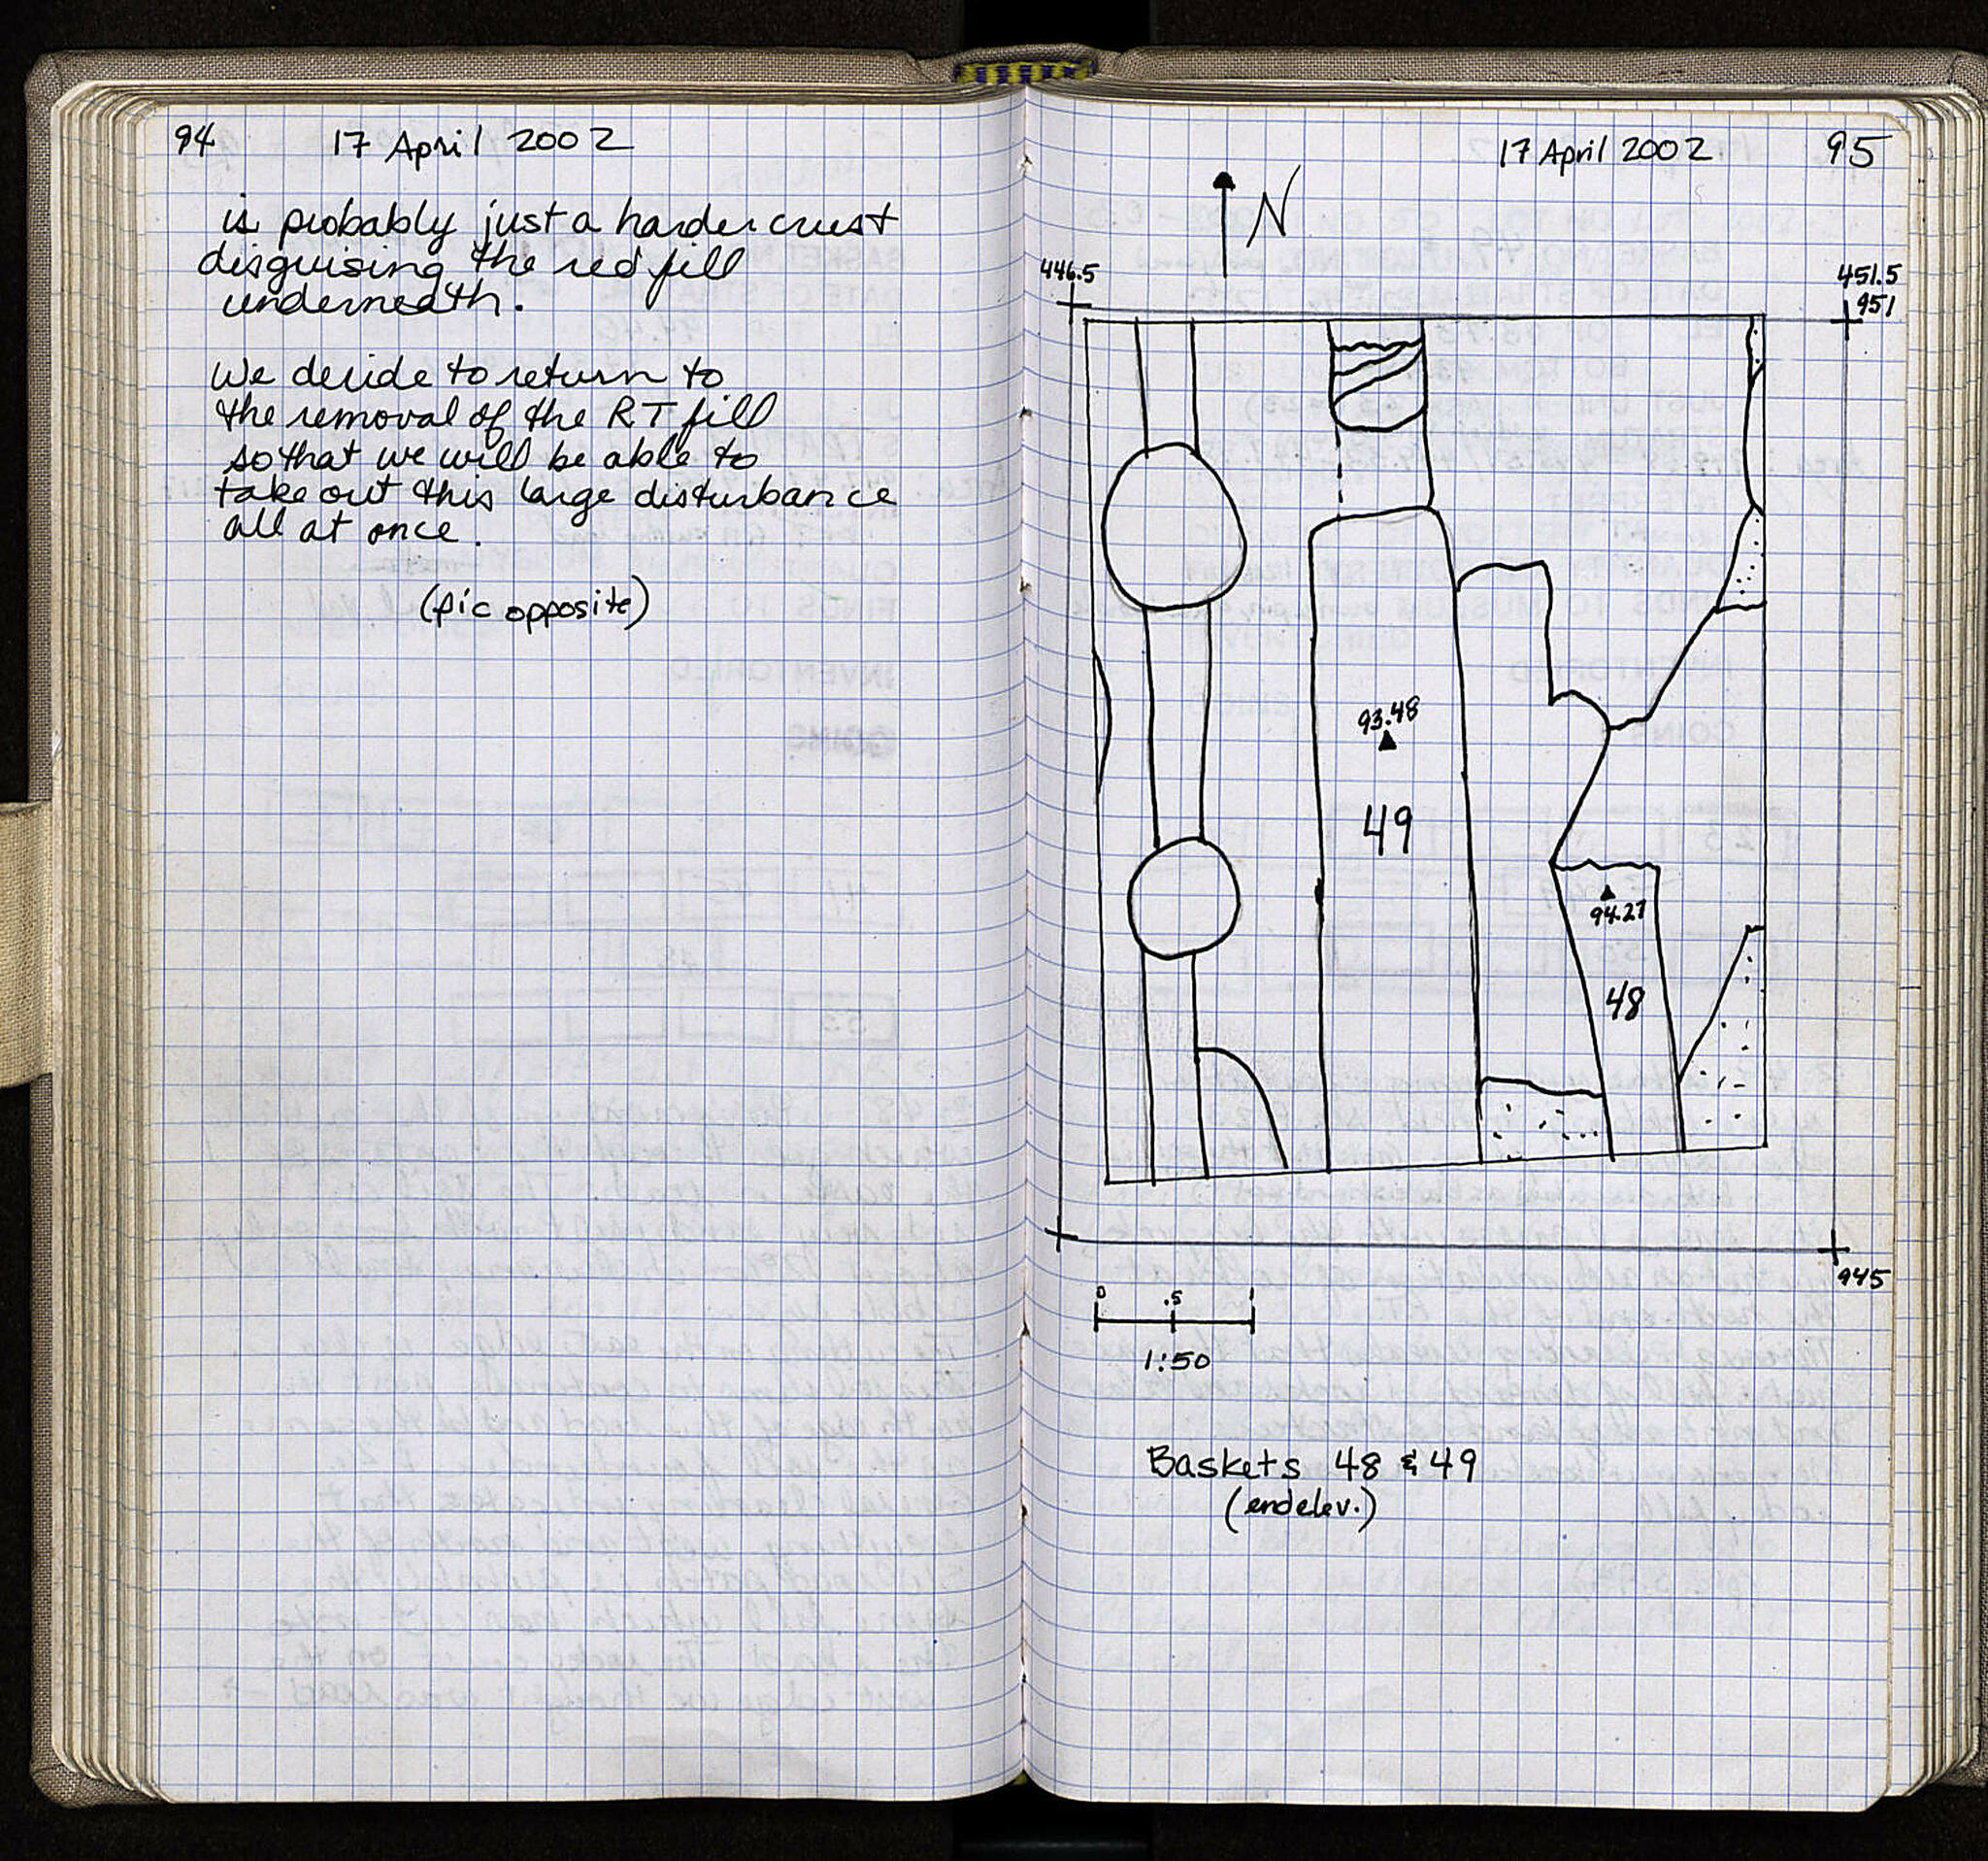 94 17 April 2002
is probably just a harder crust
disguising the red fill
underneath.
We decide to return to
the removal of the RT fill
so that we will be able to
take out this large disturbance
all at once.
(pic opposite)
17 April 2002 95
N
446.5
451.5
951
93.48
49
94.27
48
945
0 .5 1
1:50
Baskets 48 & 49
(end elev.)